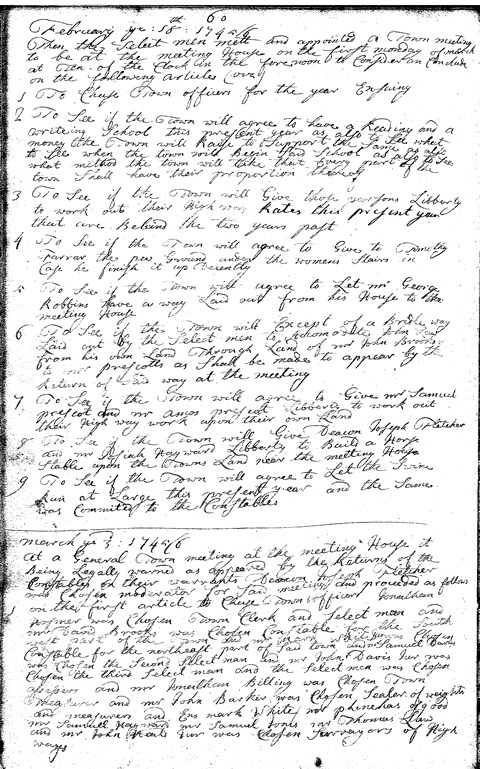 60
February ye: 18th 1745/6
Then the Select men meet and appointed a Town meeting
to be at the meeting House on the first monday of march
at Ten of the Clock in the forenoon to Consider an Conclude
on the following articles
1 To Chuse Town officers for the year Ensuing
2 To See if the Town will agree to have a Reading and a
writeing School this present year as also to See what
money the Town will Raise to Support the Same as also
to See when the town will Begin Said School as also
what method the town will take that Every part of the
town Shall have their proportion thereof
3 To See if the Town will Give those persons Libberty
to work out their High way Rates this present year
that are Behind the two years past
4 To See if the Town will agree to Give to Timothy
Farrar the pew Ground under the womens Stairs in
Case he finish it up Decently
5 To See if the Town will agree to Let mr George
Robbins have a way Laid out from his House to the
meeting House
6 To See if the Town will Except of a way
Laid out by the Select men to Accomodate John
from his own Land Through Land of mr John Brooks
to mr prescotts as Shall be made to appear by the
Return of Said way at the meeting
7 To See if the Town will agree to Give mr Samuel
prescot and mr amos prescot Libberty to work out
their High way work upon their own Land
8 To See if the Town will Give Deacon Joseph Fletcher
and mr Josiah Hayward Libberty to Build a Horse
Stable upon the Towns Land near the meeting House
9 To See if the Town will agree to Let the Swine
Run at Large this present year and the Same
was Commited to the Constables
march ye 3: 1745/6
At a General Town meeting at the meeting House it
Being Legally warned as appeared by the Returns of the
Constables on their warrants Deacon Fletcher
was Chosen moderator for Said meeting and proceded as follows
1 on the first article to Chuse Town officers Jonathan
Hosmer was Chosen Town Clerk and Select men and
mr David Brooks was Chosen Constable for the South
west part of the Town and mr Chosen
Constable for the northeast part of Said town and mr Samuel Davis
was Chosen the Second Select man and mr John Davis Jur was
Chosen the third Select man and the Select men was Chosen
assessers and mr Jonathan Billing was Chosen Town
Treasurer and mr John Barker was Chosen Sealer of weights
and measurers and Ens mark White mr phinehas osgood
mr Samuell Hayward mr Samuel Jones mr Thomas Law
and mr John Heald Jur was Chosen Surveyors of High
ways